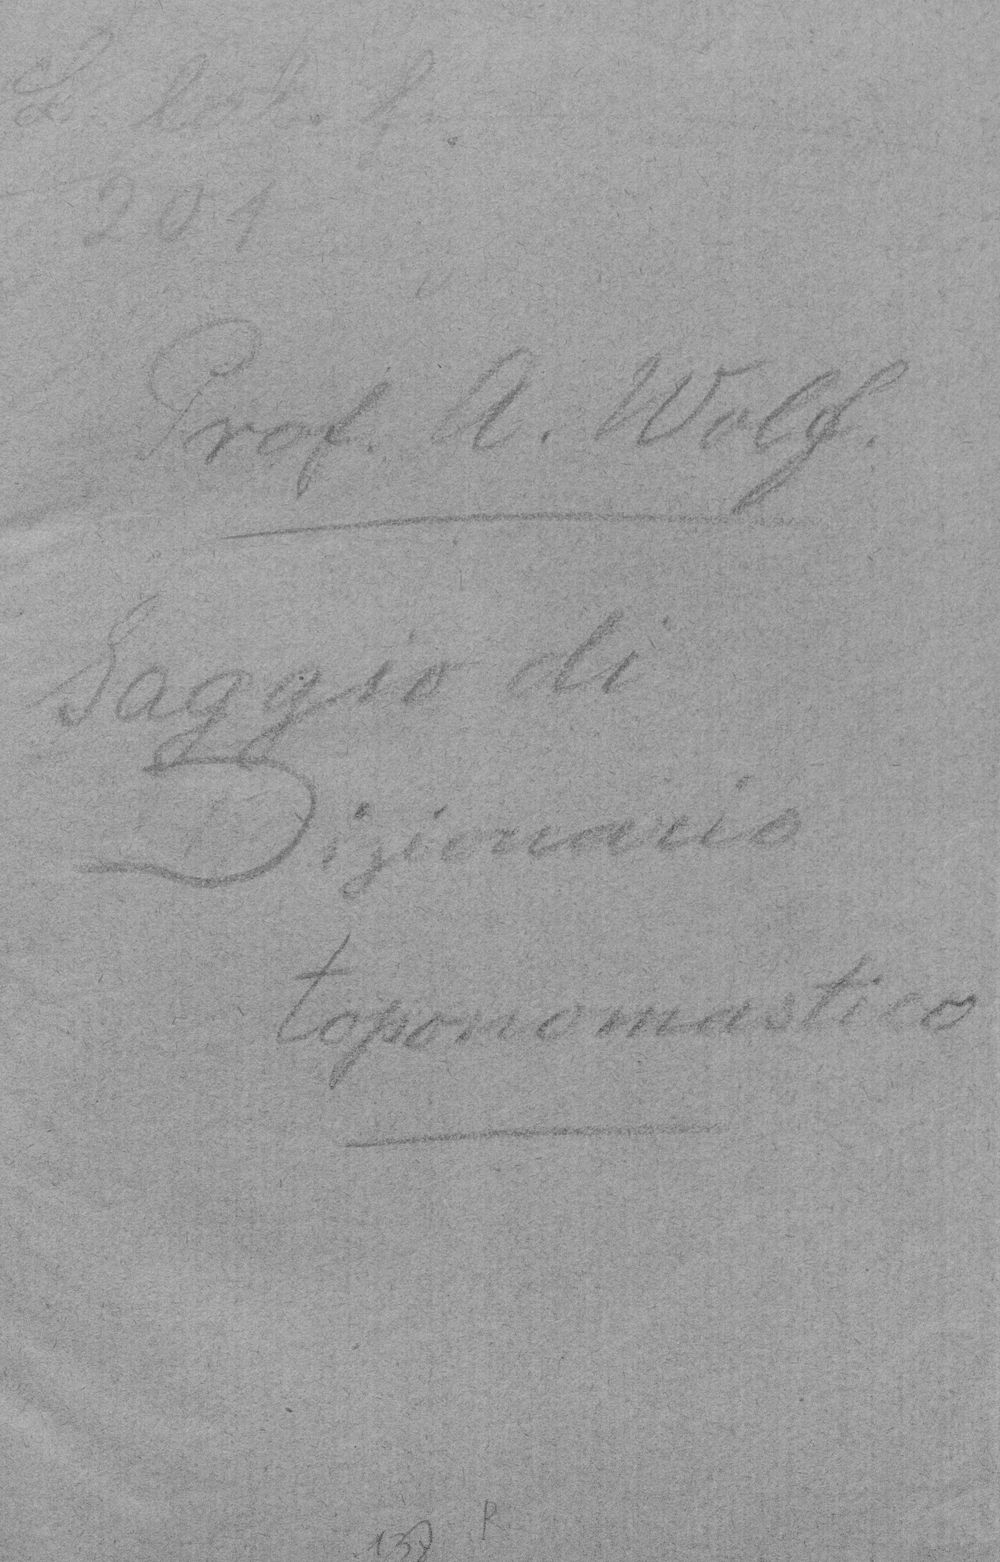 201
Prof. A. Wolf.
Saggio di
Dizionario
toponomastico
138 R.